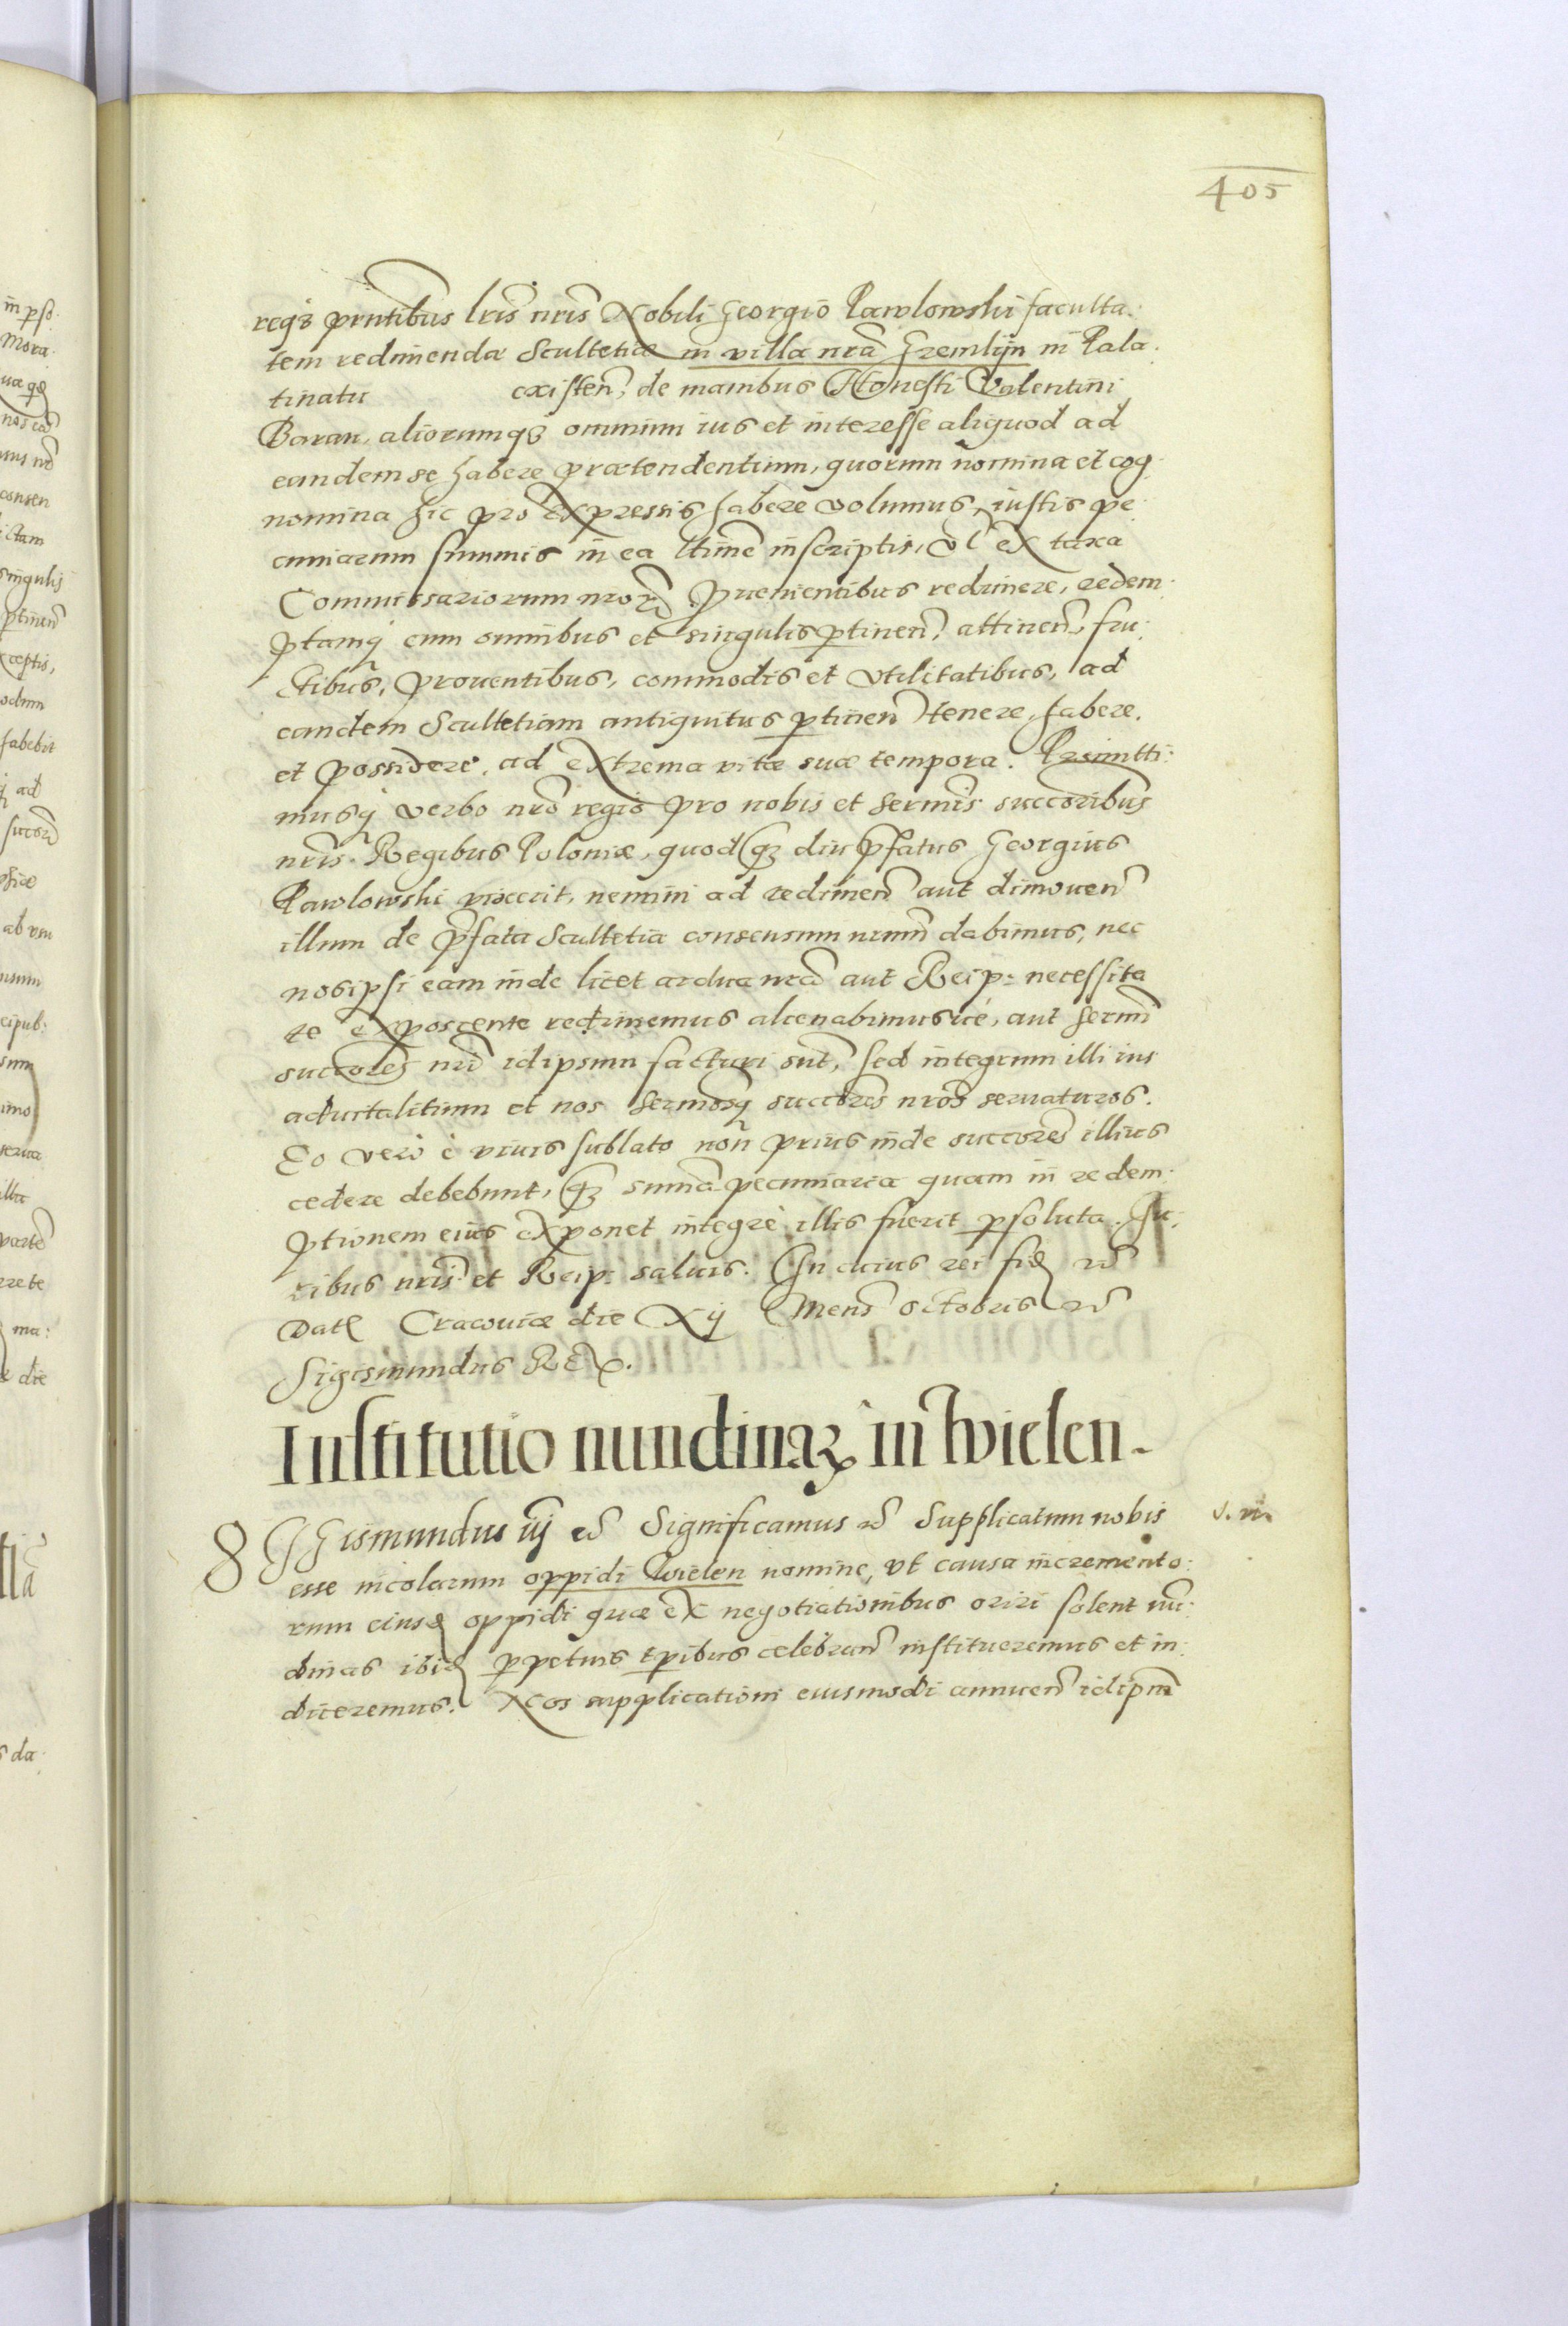 405
reqз prntibus lris nris Nobili Georgio Pawlowski faculta:
tem redimendæ Scultetiæ in villa nrã Grzemlijn in Pala:
tinatu existen, de manibus Honesti Valentini
Baran, aliorumqз omnium ius et interesse aliquod ad
eandem se habere prætendentium, quorum nomina et cog:
nomina hic pro expressis habere volumus, iustis pe
cuniarum summis in ea ltime inscriptis, vl ex taxa
Commissariorum nrorũ puenientibus redimere, redem:
ptamq cum omnibus et singulis ptinen, attinen, fru:
ctibus, prouentibus, commodis et vtilitatibus, ad
eandem Scultetiam antiquitus ptinen tenere, habere,
et possidere, ad extrema vitæ suæ tempora. Promitti:
musq verbo nro regio pro nobis et sermis succoribus
nris Regibus Poloniæ, quod qз diu pfatus Georgius
Pawlowski vixerit, nemini ad redimen aut dimouen
illum de pfata Scultetia consensum nrum dabimus, nec
nosipsi eam inde licet ardua nrã aut Reip: necessita
te exposcente redimemus alienabimusue, aut sermi
succores nri idipsum facturi sut, sed integrum illi ius
aduitalitium et nos sermosq succores nros seruaturos.
Eo vero è viuis sublato non prius inde succores illius
cedere debebunt, qз summa pecuniaria quam in redem:
ptionem eius exponet integrè illis fuerit psoluta. Iu:
ribus nris et Reip: saluis. In cuius rei fid
Dat Cracouiæ die Xij Mens octobris
Sigismundus Rex.
Institutio nundinaꝝ in Wielen.
8 SGismundus iij Significamus Supplicatum nobis
esse incolarum oppidi Wielen nomine, vt causa incremento:
rum eiusd oppidi quæ ex negotiationibus oriri solent nu:
dinas ibid ppetuis tpibus celebran institueremus et in:
diceremus. Nos supplicationi eiusmodi annuen idipm